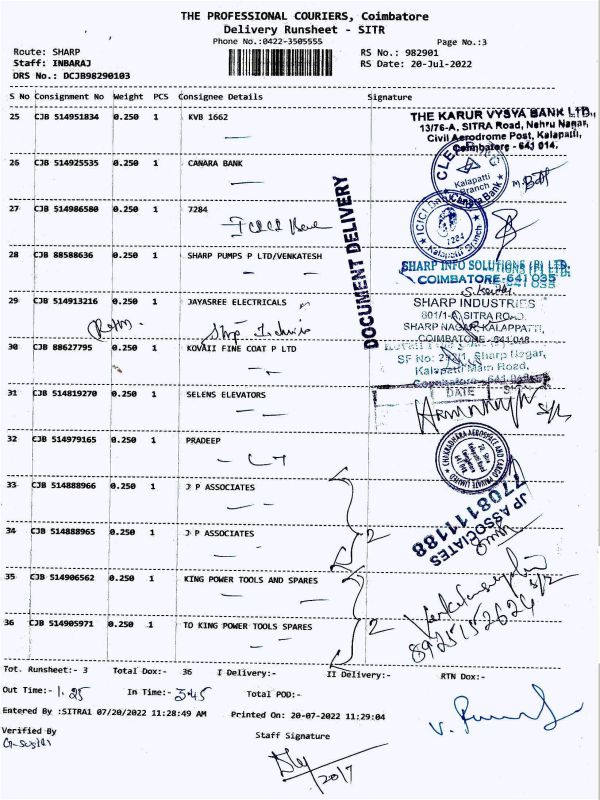 THE PROFESSIONAL COURIERS, Coimbatore
Delivery Runsheet - SITR
Phone No.:0422-3505555 Page No.:3
Route: SHARP RS No.: 982901
Staff: INBARAJ RS Date: 20-Jul-2022
DRS No.: DCJB98290103
S No Consignment No Weight PCS Consignee Details Signature
25 CJB 514951834 0.250 1 KVB 1662
THE KARUR VYSYA BANK LTD.,
13/76-A, SITRA Road, Nehru Nagar,
Civil Aerodrome Post, Kalapatti,
Coimbatore - 641 014.
26 CJB 514925535 0.250 1 CANARA BANK
Kalapatti Branch
Canara Bank
27 CJB 514986580 0.250 1 7284
ICICI Bank
ICICI Bank
7284
Kalapatti Branch
DOCUMENT DELIVERY
28 CJB 88588636 0.250 1 SHARP PUMPS P LTD/VENKATESH
SHARP INFO SOLUTIONS (P) LTD.
COIMBATORE-641 035
29 CJB 514913216 0.250 1 JAYASREE ELECTRICALS
SHARP INDUSTRIES
801/1-A, SITRA ROAD,
SHARP NAGAR, KALAPPATTI,
COIMBATORE - 641 048
30 CJB 88627795 1 KOVAII FINE COAT P LTD
Sharp Nagar,
Kalapatti Main Road,
Coimbatore - 641
31 CJB 514819270 0.250 1 SELENS ELEVATORS
DATE
32 CJB 514979165 0.250 1 PRADEEP
CHAKRADHARA AEROSPACE AND CARGO PRIVATE LIMITED
33 CJB 514888966 0.250 1 J P ASSOCIATES
34 CJB 514888965 0.250 1 J P ASSOCIATES
2
JP ASSOCIATES
7708111188
35 CJB 514906562 0.250 1 KING POWER TOOLS AND SPARES
36 CJB 514905971 0.250 1 TO KING POWER TOOLS SPARES
2
8925152624
Tot. Runsheet:- 3 Total Dox:- 36 I Delivery:- II Delivery:- RTN Dox:-
Out Time:- 1.25 In Time:- 3.45 Total POD:-
Entered By :SITRA1 07/20/2022 11:28:49 AM Printed On: 20-07-2022 11:29:04
Verified By Staff Signature
20/7